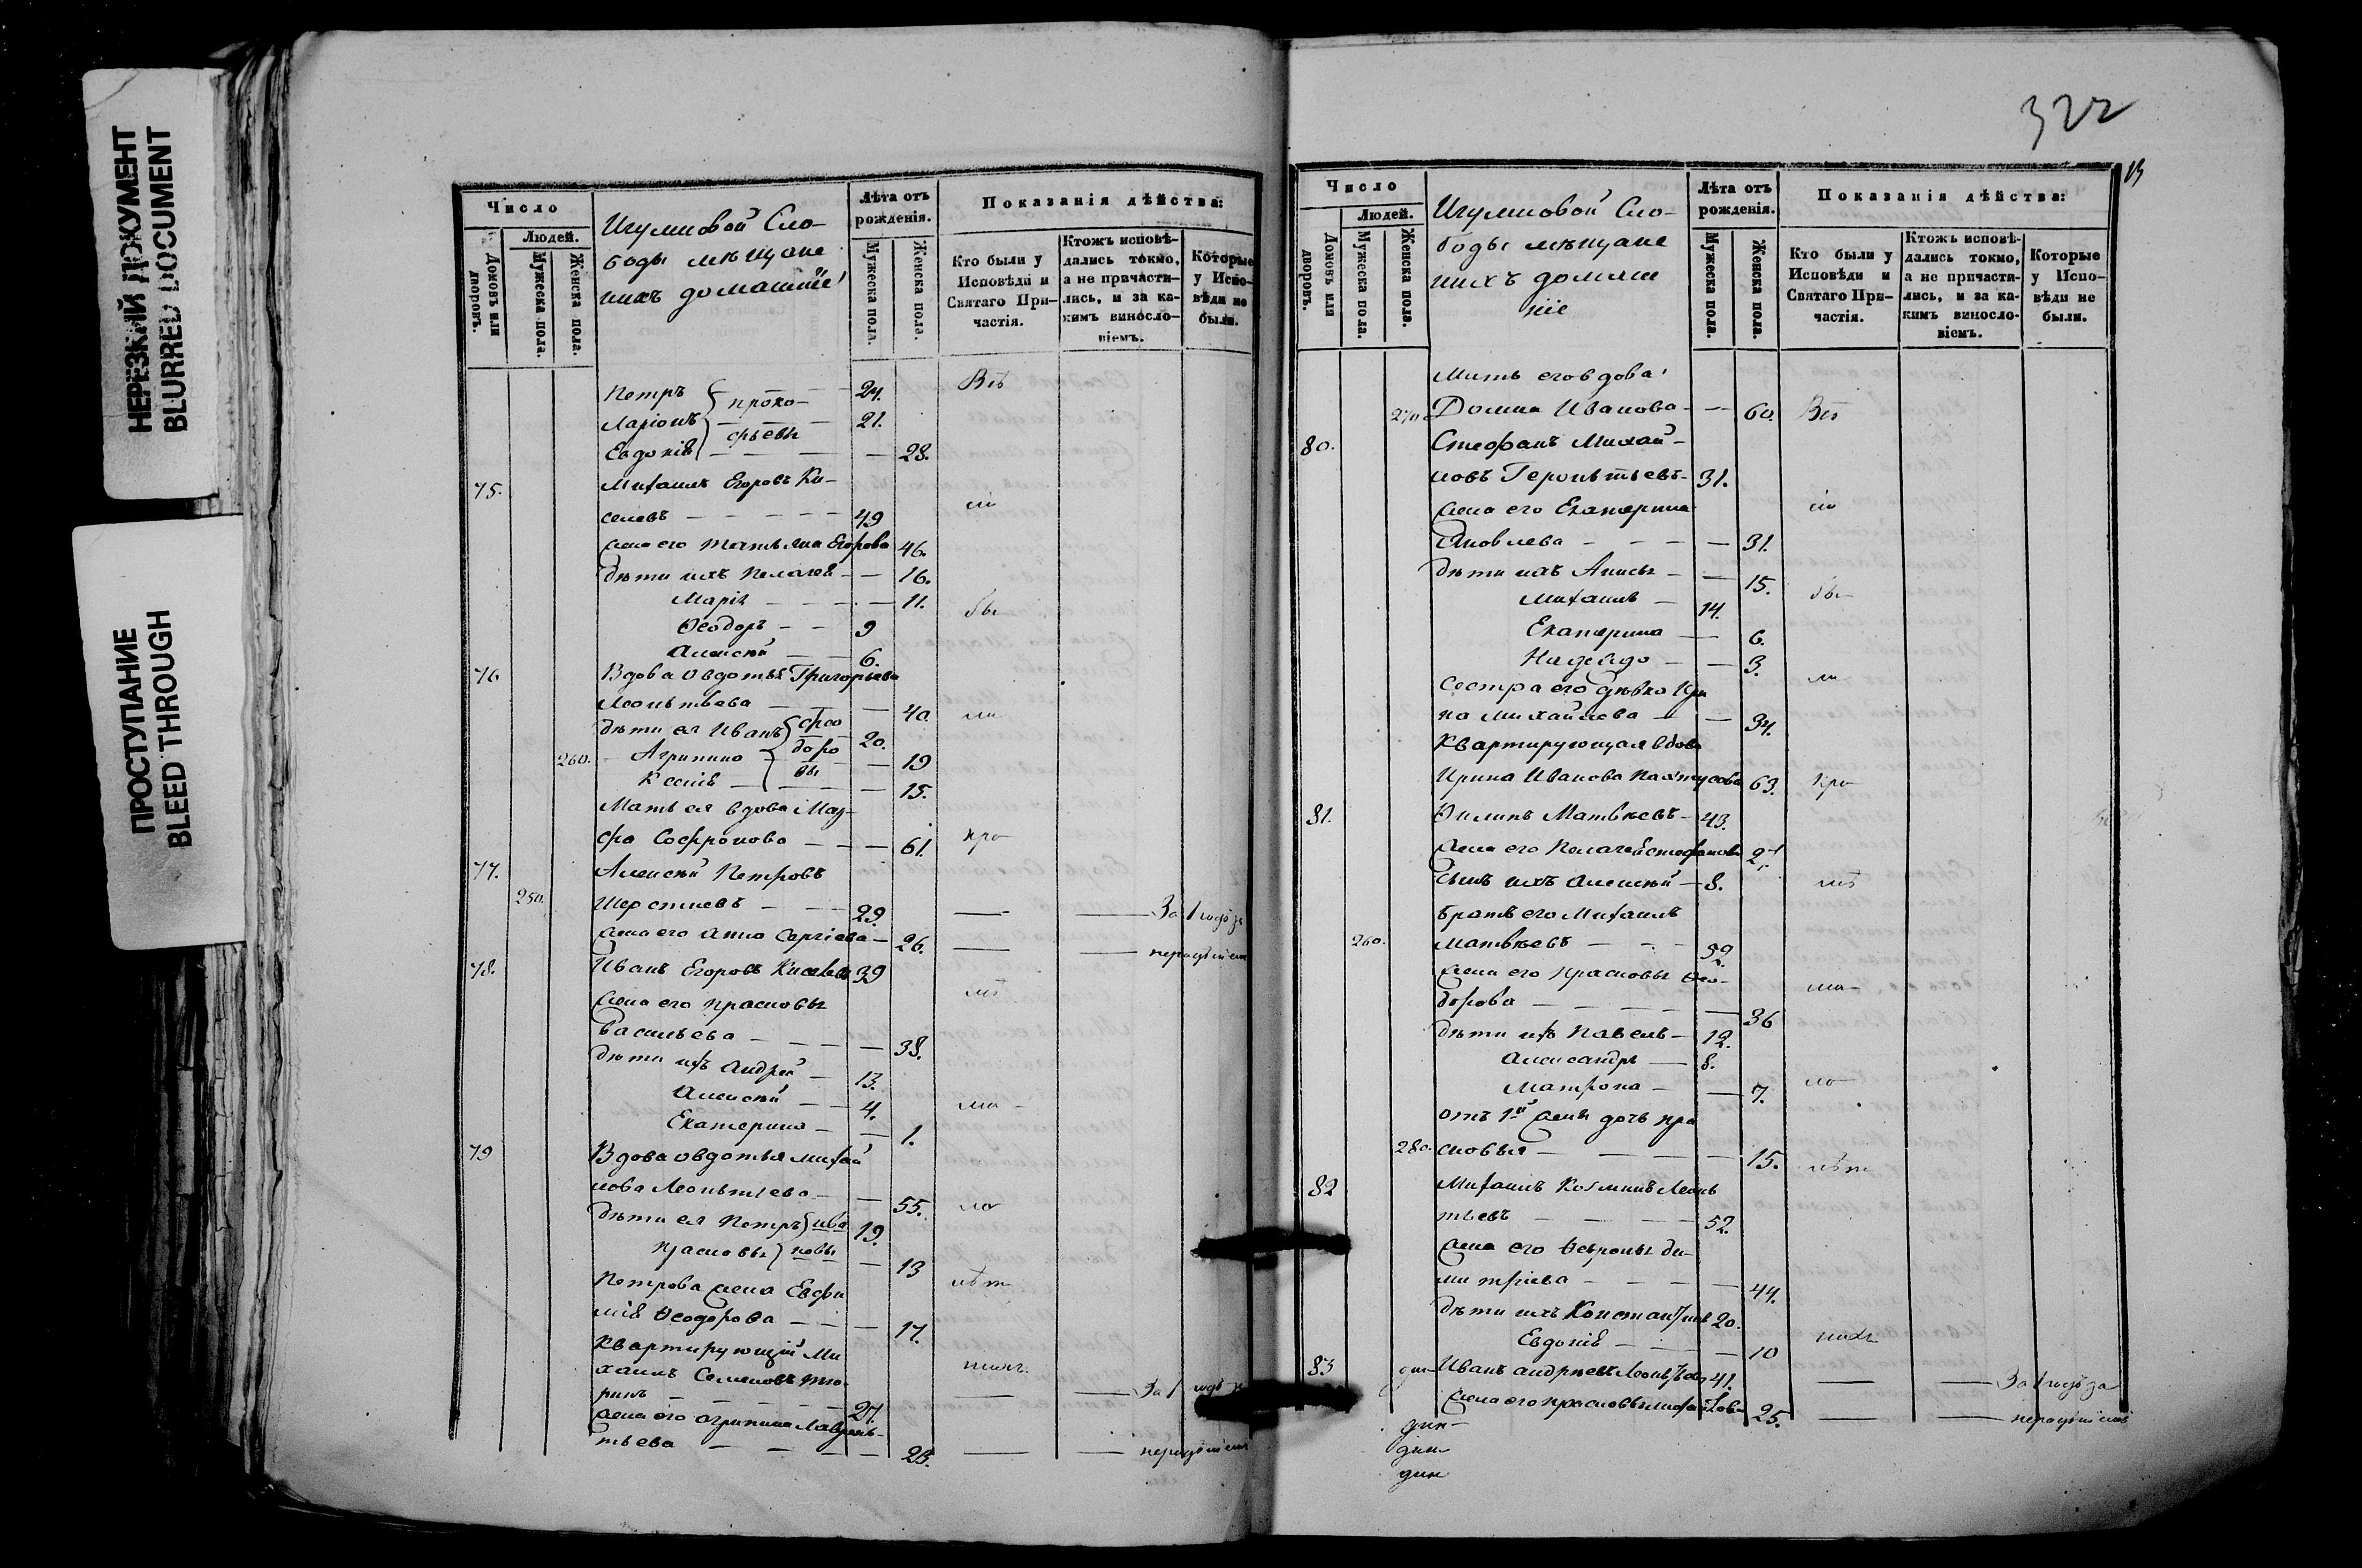 НЕРЕЗКИЙ ДОКУМЕНТ
BLURRED DOCUMENT
ПРОСТУПАНИЕ
BLEED THROUGH
Число
Людей.
Домовъ или дворовъ.
Мужеска пола.
Женска пола.
Игумновой Сло-
боды мѣщане
ихъ домашніе
Лѣта отъ рожденія.
Мужеска пола.
Женска пола.
Показанія дѣйства:
Кто были у Исповѣди и Святаго При-частія.
Ктожъ исповѣ-дались токмо, а не причасти-лись, и за ка-кимъ винosло-віемъ.
Которые у Испо-вѣди не были.
Петръ 24. Всѣ
Проко-
Ларіонъ 21.
фьевы
Евдокія 28.
75. Михаилъ Егоровъ Ки-
селевъ 49
Жена его Татьяна Егорова 46.
Дѣти ихъ Пелагея 16.
Марія 11. бы
Ѳеодоръ 9
Алексѣй 6.
76 Вдова Овдотья Григорьева
Леонтьева 40
Дѣти ея Иванъ 20.
Ѳео
доро
вы
260. Агрипина 19
Ксенія 15.
Мать ея вдова Мав-
фа Софронова 61.
77. Алексѣй Петровъ
250. Шерстневъ 29. За 1 годъ за
Жена его Анна Сергіева 26. нерадѣніемъ
78. Иванъ Егоровъ Киселевъ 39
Жена его Прасковья
Васильева 38.
Дѣти ихъ Андрей 13.
Алексѣй 4.
Екатерина 1.
79 Вдова Овдотья Михай
лова Леонтьева 55.
Дѣти ея Петръ 19.
Ива
новы
Прасковья 13
Петрова жена Евфи
мія Ѳеодорова 17. лѣт
Квартирующій Ми
хаилъ Семеновъ Тю-
ринъ 27. За 1 годъ за
Жена его Агрипина Лаврень-
тьева 25. нерадѣніемъ
322
Число
Людей.
Домовъ или дворовъ.
Мужеска пола.
Женска пола.
Игумновой Сло-
боды мѣщане
ихъ домаш
ніе
Лѣта отъ рожденія.
Мужеска пола.
Женска пола.
Показанія дѣйства:
Кто были у Исповѣди и Святаго При-частія.
Ктожъ исповѣ-дались токмо, а не причасти-лись, и за ка-кимъ виносло-віемъ.
Которые у Испо-вѣди не были.
Мать его вдова
270. Домна Иванова 60. Всѣ
80. Стефанъ Михай-
ловъ Геронтьевъ 31.
Жена его Екатерина
Яковлева 31.
Дѣти ихъ Анисья 15. бы
Михаилъ 14.
Екатерина 6.
Надежда 3. ли
Сестра его дѣвка Ири
на Михайлова 34.
Квартирующая вдова
Ирина Иванова 63.
81. Филипъ Матвѣевъ 43.
Жена его Пелагея Стефанова
Сынъ ихъ Алексѣй 8.
Братъ его Михаилъ
260. Матвѣевъ 52.
Жена его Прасковья Ѳео-
дорова 36
Дѣти ихъ Павелъ 12.
Александръ 8.
Матрона 7.
Отъ 1й жены дочь Пра
280. сковья 15. лѣт
82 Михаилъ Козминъ Леонь
тьевъ 52.
Жена его Ѳевронья Ди-
митріева 44.
Дѣти ихъ Константинъ 20.
Евдокія 10
83 Иванъ Андреевъ Леонтьевъ 41. За 1 годъ за
Жена его Прасковья Михайлова 25. нерадѣніемъ